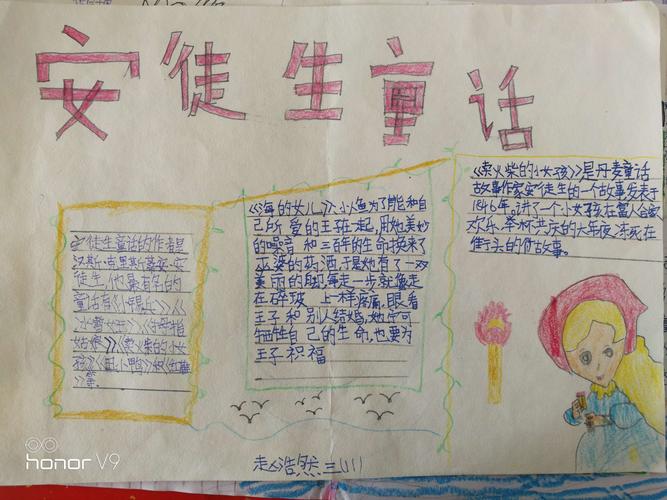 安徒生童话
安徒生童话的作者是
汉斯·克里斯蒂安·安
徒生,他最有名的
童话有《小锡兵》《
冰雪女王》《拇指
姑娘》《卖火柴的小女
孩》《丑小鸭》和《红鞋
》等。
《海的女儿》小人鱼为了能和自
己所爱的王在一起,用她美妙
的嗓音和三百年的生命换来了
巫婆的药酒,于是她有了一双
美丽的腿,每走一步就像走
在碎玻 上一样疼痛,眼看
王子和别人结婚,她宁可
牺牲自己的生命,也要为
王子祝福
《卖火柴的小女孩》是丹麦童话
故事作家安徒生的一个故事发表于
1846年。讲了一个小女孩在富人合家
欢乐,举杯共庆的大年夜冻死在
街头的 故事。
赵浩然三(1)
honor V9